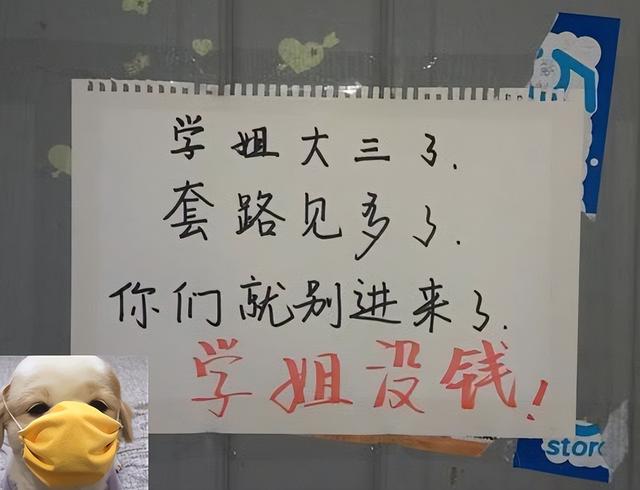 学姐大三了.
套路见多了.
你们就别进来了.
学姐没钱!
store